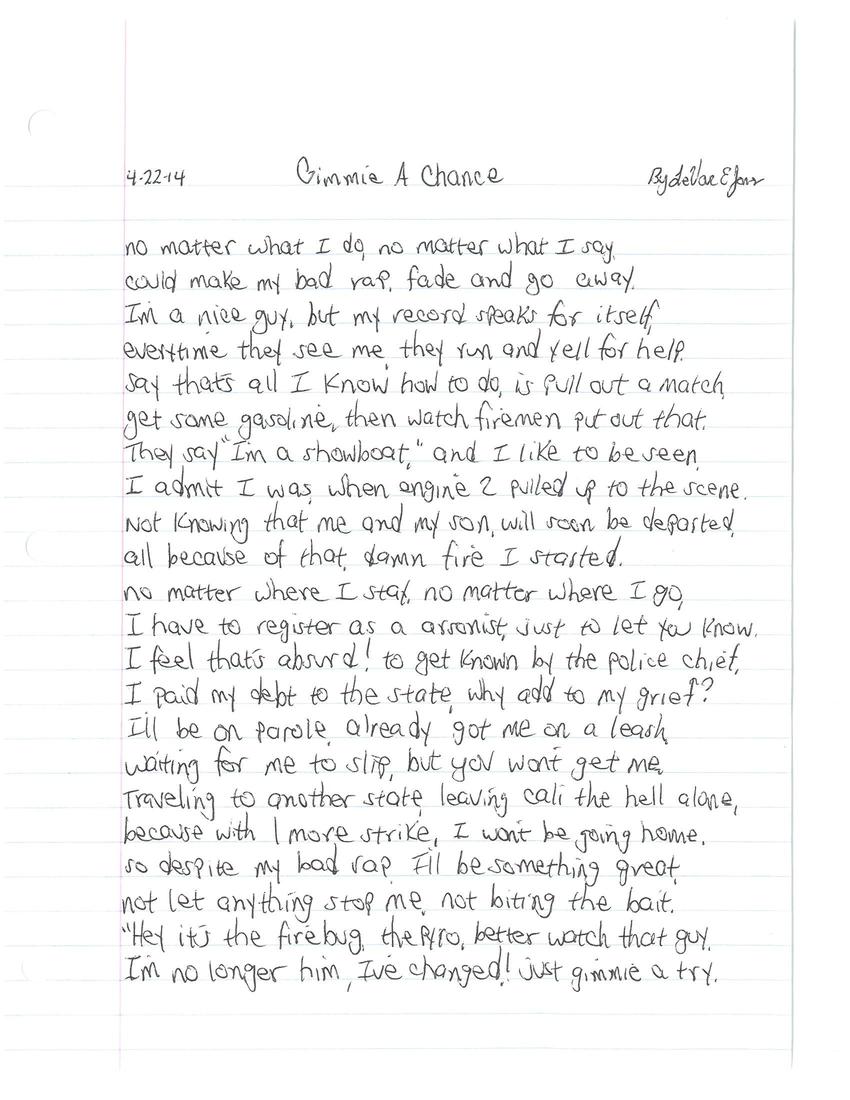 4-22-14 Gimmie A Chance By
no matter what I do, no matter what I say,
could make my bad rap, fade and go away.
I'm a nice guy, but my record speaks for itself,
everytime they see me, they run and yell for help.
say that's all I know how to do, is pull out a match,
get some gasoline, then watch firemen put out that.
They say "I'm a showboat," and I like to be seen,
I admit I was, when engine 2 pulled up to the scene.
Not knowing that me and my son, will soon be departed,
all because of that, damn fire I started.
no matter where I stay, no matter where I go,
I have to register as a arsonist, just to let you know.
I feel that's absurd! to get known by the police chief,
I paid my debt to the state, why add to my grief?
I'll be on parole, already got me on a leash,
waiting for me to slip, but you won't get me,
Traveling to another state, leaving cali the hell alone,
because with 1 more strike, I won't be going home.
so despite my bad rap I'll be something great,
not let anything stop me, not biting the bait.
"Hey it's the firebug, the pyro, better watch that guy,
I'm no longer him, I've changed! just gimmie a try.